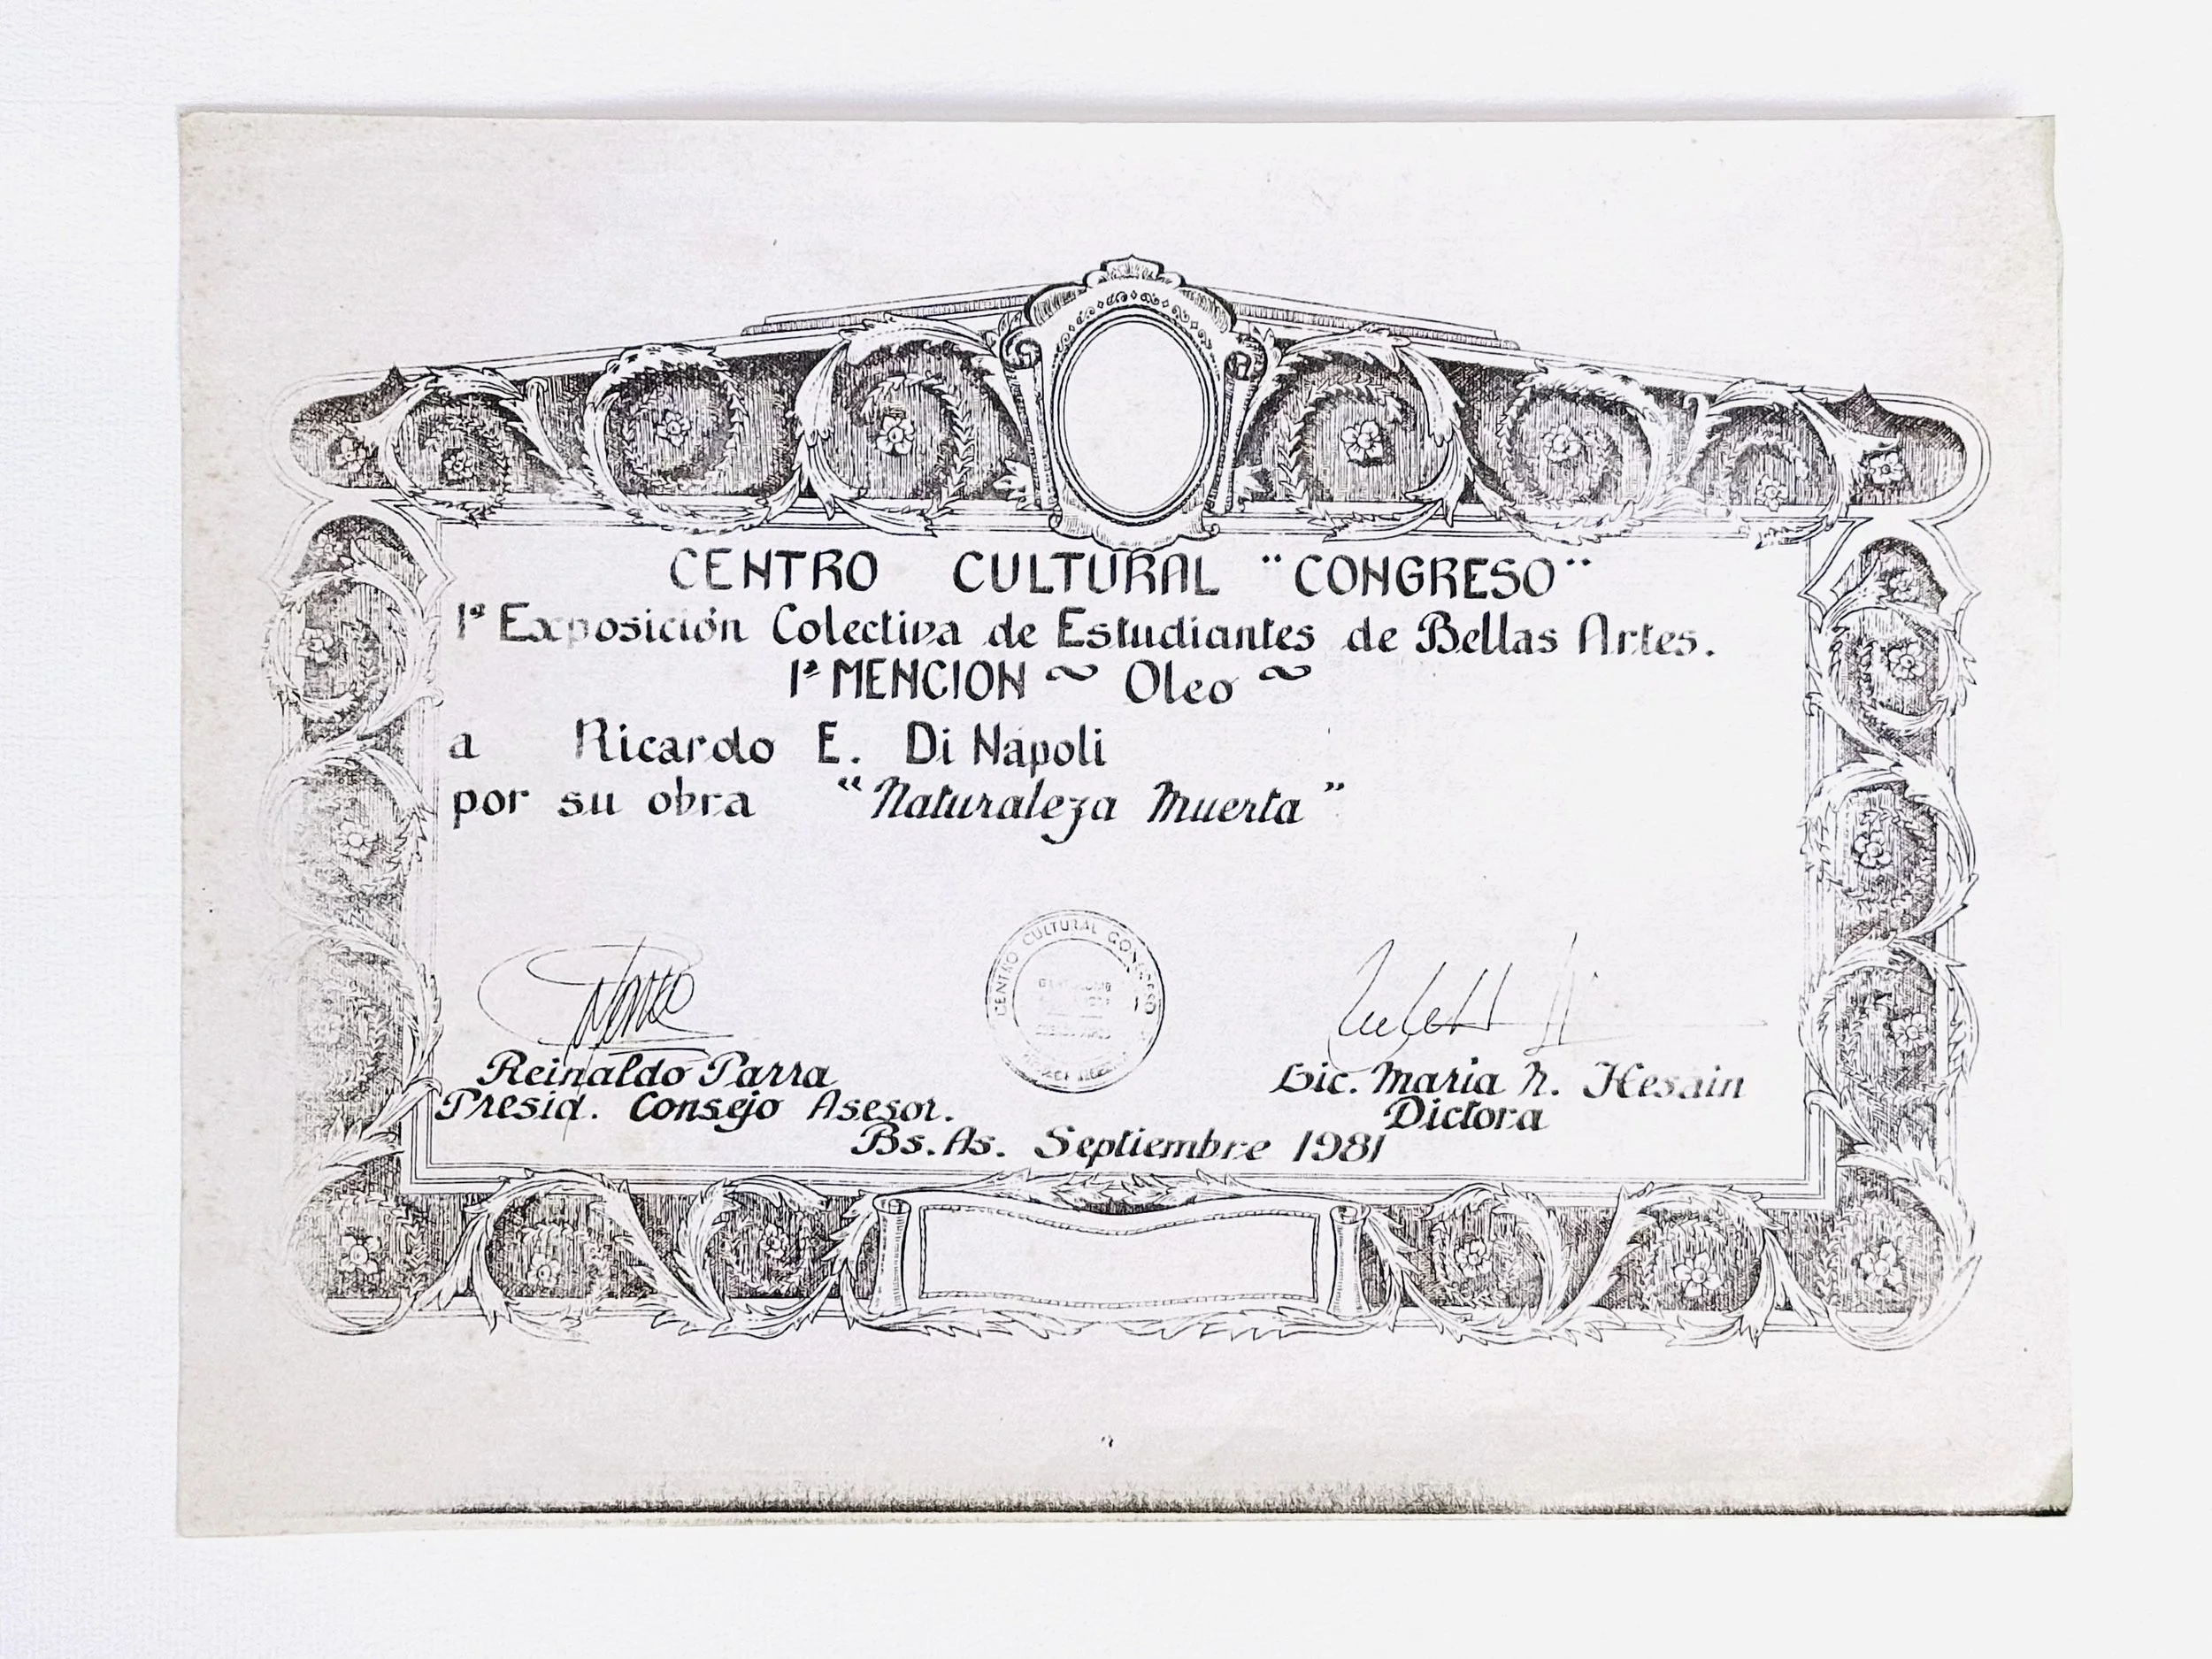 CENTRO CULTURAL "CONGRESO"
1ª Exposición Colectiva de Estudiantes de Bellas Artes.
1ª MENCION ~ Oleo ~
a Ricardo E. Di Nápoli
por su obra "Naturaleza Muerta"
CENTRO CULTURAL CONGRESO
Reinaldo Parra
Lic. Maria N. Hesain
Presid. Consejo Asesor.
Dictora
Bs. As. Septiembre 1981